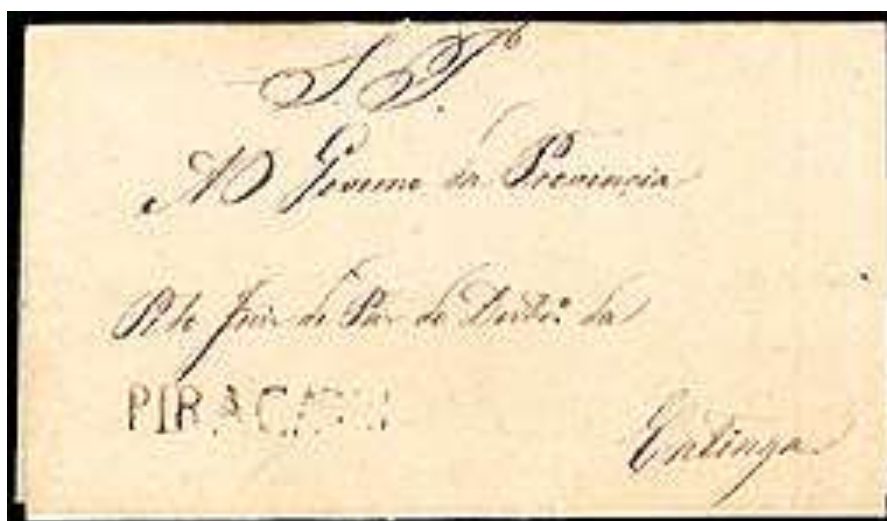 S. P.
Ao Governo da Provincia
Pelo Juiz de Paz do Distro. da
PIRACA
Catinga